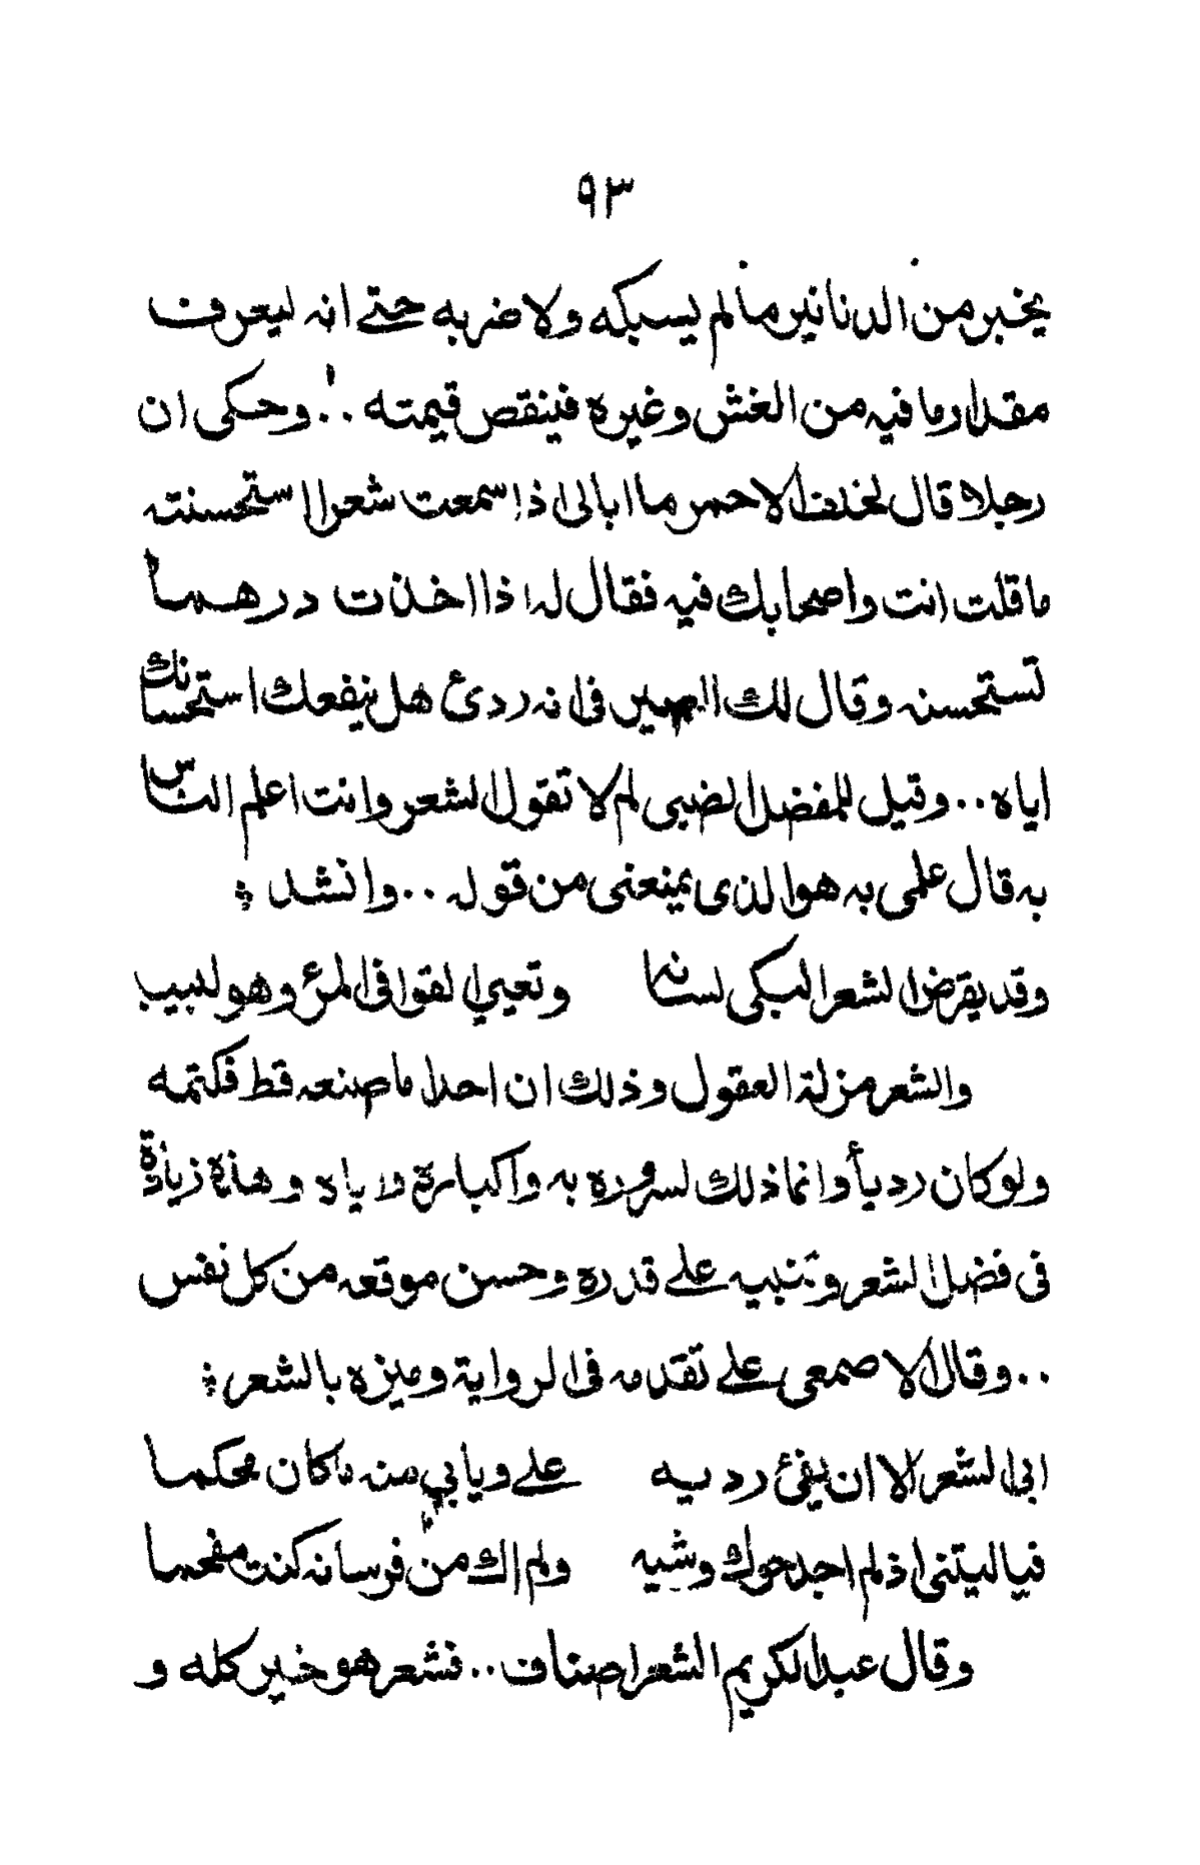 ٩٣
يخبر من الدنانير ما لم يسبكه ولا ضربه حتے انه ليعرف
مقدار ما فيه من الغش وغيره فينقص قيمته .!. وحكى ان
رجلا قال لخلف الاحمر ما ابالى اذا سمعت شعرا استحسنته
ما قلت انت واصحابك فيه فقال له اذا اخذت درهما
تستحسنه وقال لك الصيرفى انه ردئ هل ينفعك استحسانك
اياه .. وقيل للمفضل الضبى لم لا تقول الشعر وانت اعلم الناس
به قال علمى به هو الذى يمنعنى من قوله .. وانشد ؛
وقد يقرض الشعر البكى لسانه وتعيي القوافى المرء وهو لبيب
والشعر مزلة العقول وذلك ان احدا ما صنعه قط فكتمه
ولو كان رديأ وانما ذلك لسروره به واكباره اياه وهذه زيادة
فى فضل الشعر وتنبيه علے قدره وحسن موقعه من كل نفس
.. وقال الاصمعى علے تقدمه فى الرواية وميزه بالشعر ؛
ابى الشعر الا ان يفئ رديه علے ويابي منه ما كان محكما
فيا ليتنى اذ لم اجد حوك وشيه ولم اك من فرسانه كنت مفحما
وقال عبد الكريم الشعر اصناف .. فشعر هو خير كله و